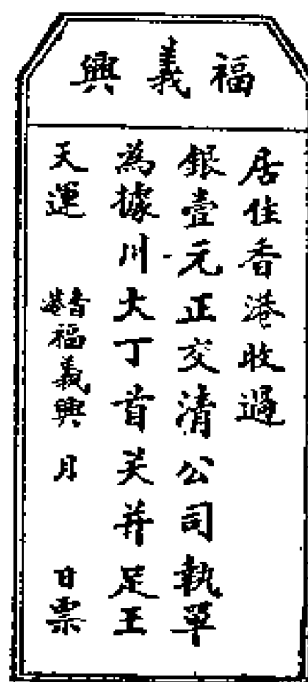 福義興
居住香港收過
銀壹元正交清公司執單
為據川大丁首关并足王
天運 福義興 月 日票